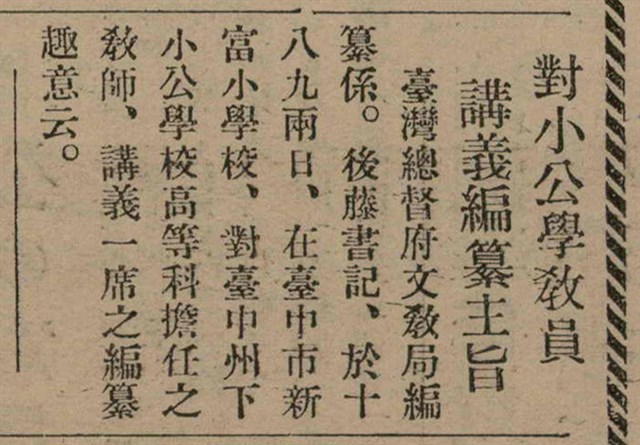 對小公學敎員
講義編纂主旨
臺灣總督府文敎局編
纂係。後藤書記、於十
八九兩日、在臺中市新
富小學校、對臺中州下
小公學校高等科擔任之
敎師、講義一席之編纂
趣意云。